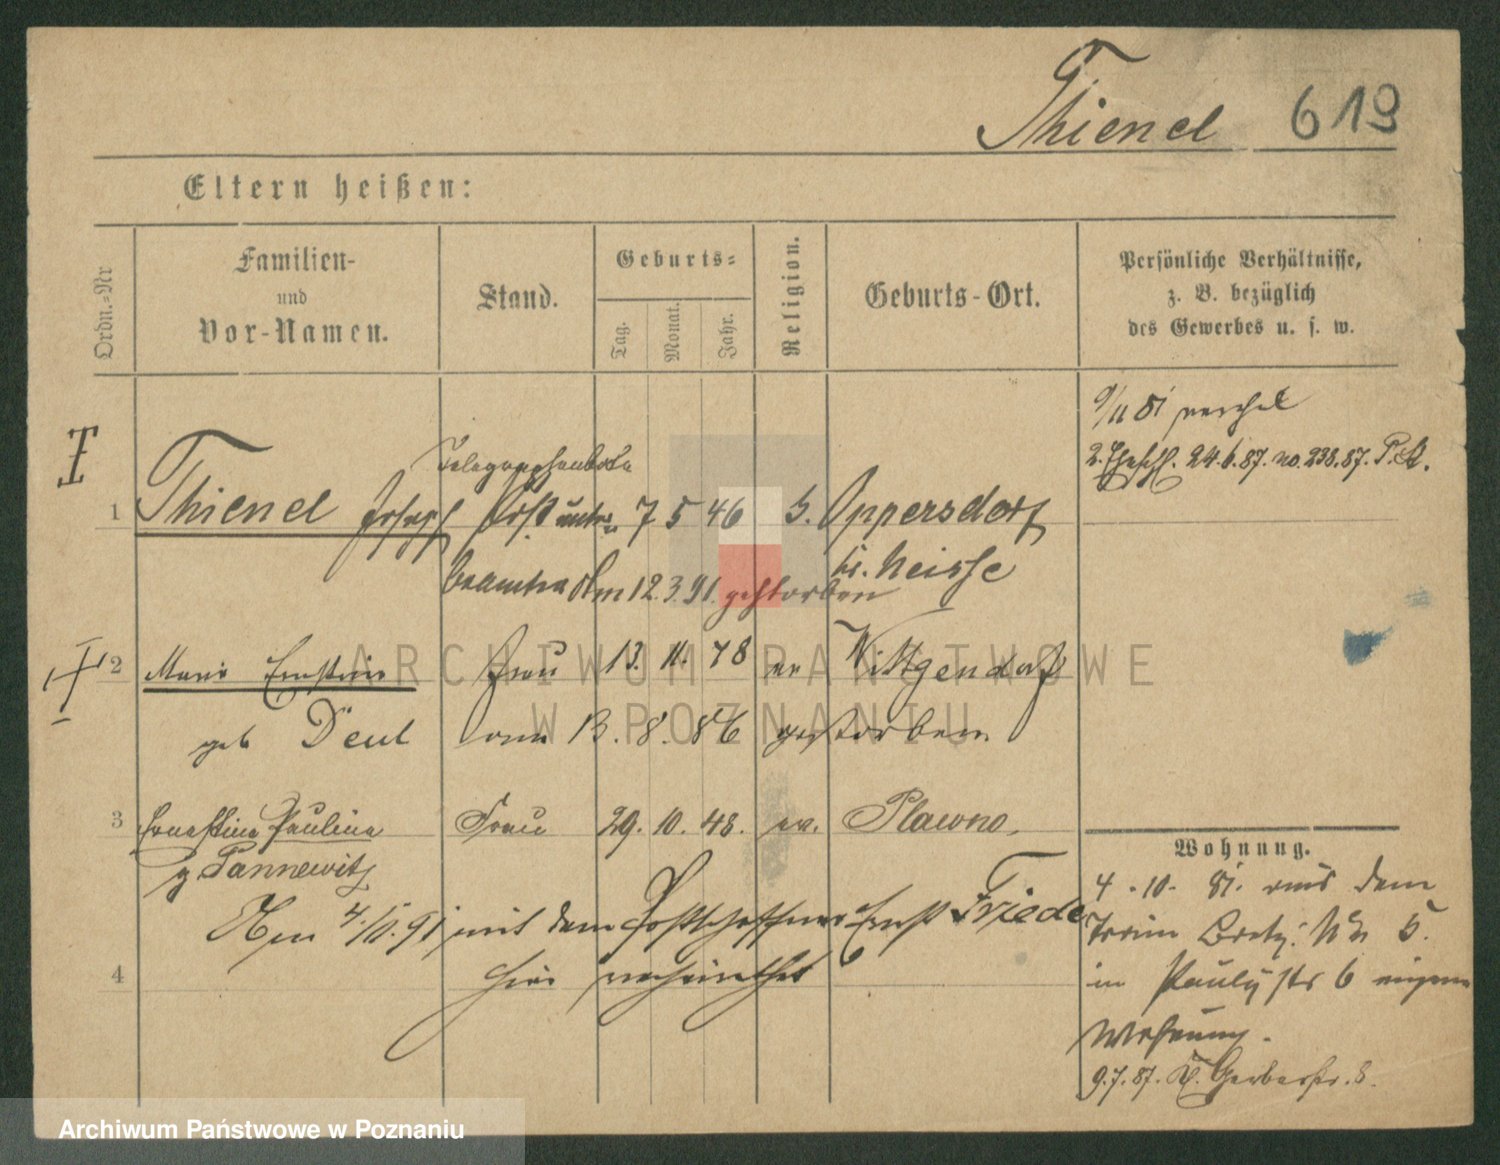 Thienel 619
Eltern heißen:
Ordn.-Nr
Familien-
und
Vor-Namen.
Stand.
Geburts-
Tag.
Monat.
Jahr.
Religion.
Geburts-Ort.
Persönliche Verhältnisse,
z. B. bezüglich
des Gewerbes u. s. w.
2. Eheschl. 24.6.87. no. 238.87. P. St.
Telegraphenbote
1 Thienel Joseph Post unter 7 5 46 Oppersdorf
beamter Am 12.3.91. gestorben Kr. Neisse
2 Marie Ernstine Frau 13. 11. 48 ev Wittgendorf
geb Deul am 13. 8. 86 gestorben
3 Ernestine Pauline Frau 29. 10. 48. ev. Plawno.
g. Pannewitz
Am 4./10. 91 mit dem Postschaffner Ernst Friede
4 hier verheirathet
Wohnung.
4.10. 81. aus dem
5.
in Paulystr 6 eigene
Wohnung.
9.7.87. Gerberstr. 8.
ARCHIWUM PAŃSTWOWE
W POZNANIU
Archiwum Państwowe w Poznaniu